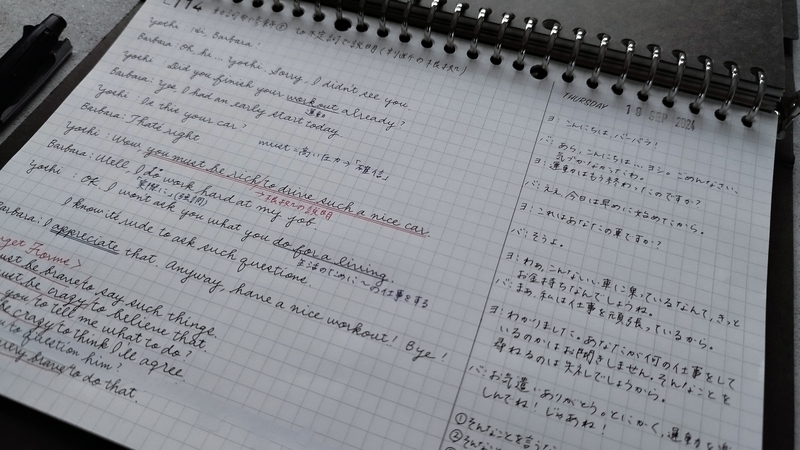 Yoshi: Hi, Barbara!
Barbara: Oh hi... Yoshi. Sorry, I didn't see you.
Yoshi: Did you finish your workout already?
運動
Barbara: Yes, I had an early start today.
Yoshi: Is this your car?
Barbara: That's right.
must = 高い仕方で「確信」
Yoshi: Wow, you must be rich to drive such a nice car.
Barbara: Well, I do work hard at my job.
Yoshi: OK. I won't ask you what you do for a living.
生活のために〜の仕事をする
I know it's rude to ask such questions.
Barbara: I appreciate that. Anyway, have a nice workout! Bye!
get Forms>
ust be brave to say such things.
ust be crazy to believe that.
you to tell me what to do?
be crazy to think I'll agree.
to question him?
brave to do that.
THURSDAY 19 SEP 2024
ヨ: こんにちは、バーバラ!
バ: あら、こんにちは… ヨシ。ごめんなさい、
気づかなかったわ。
ヨ: 運動はもう終わったのですか?
バ: ええ、今日は早めに始めてたから。
ヨ: これはあなたの車ですか?
バ: そうよ。
ヨ: わぁ、こんないい車に乗っているなんて、きっと
お金持ちなんでしょうね。
バ: まぁ、私は仕事を頑張っているから。
ヨ: わかりました。あなたが何の仕事をして
いるのかはお聞きしません。そんなことを
尋ねるのは失礼でしょうから。
バ: お気遣いありがとう。とにかく、運動を楽
しんでね! じゃあね!
① そんなことを言うな
② そんな